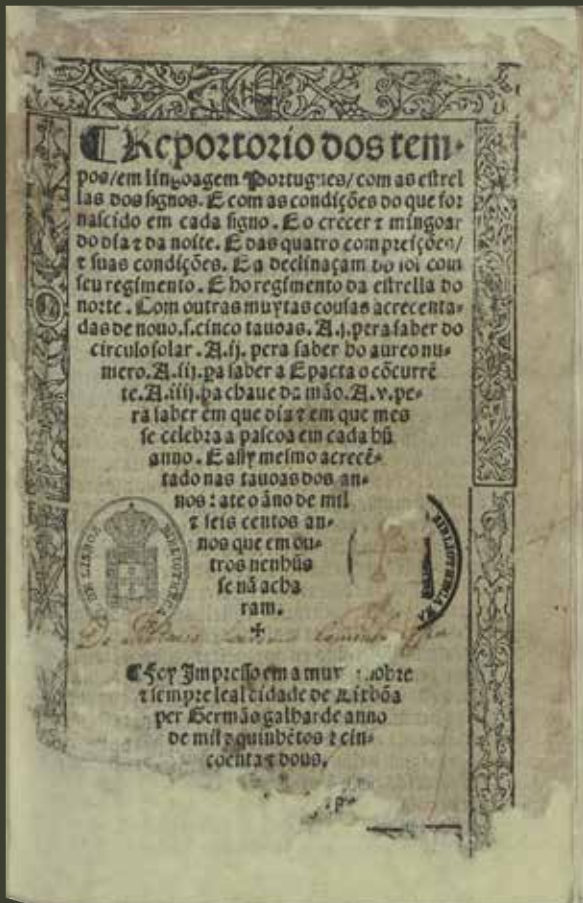 ¶ Reportorio dos tem-
pos/em lingoagem Portugues/com as estrel
las dos signos. E com as condições do que for
nascido em cada signo. E o crecer ⁊ mingoar
do dia ⁊ da noite. E das quatro compreições/
⁊ suas condições. E a declinaçam do sol com
seu regimento. E ho regimento da estrella do
norte. Com outras muytas cousas acrecenta-
das de nouo .s. cinco tauoas. A .j. pera saber do
circulo solar. A .ij. pera saber do aureo nu-
mero. A .iij. pa saber a Epacta o cõcurrẽ
te. A .iiij. pa chaue da mão. A .v. pe-
ra saber em que dia ⁊ em que mes
se celebra a pascoa em cada hũ
anno. E assy mesmo acrecẽ-
tado nas tauoas dos an-
nos: ate o ãno de mil
⁊ seis centos an-
nos que em ou-
tros nenhũs
se nã acha
ram.
✠
BIBLIOTHECA
DE LISBOA
¶ Foy Impresso em a muy nobre
⁊ sempre leal cidade de Lixbõa
per Germão galharde anno
de mil ⁊ quinhẽtos ⁊ cin-
coenta ⁊ dous.